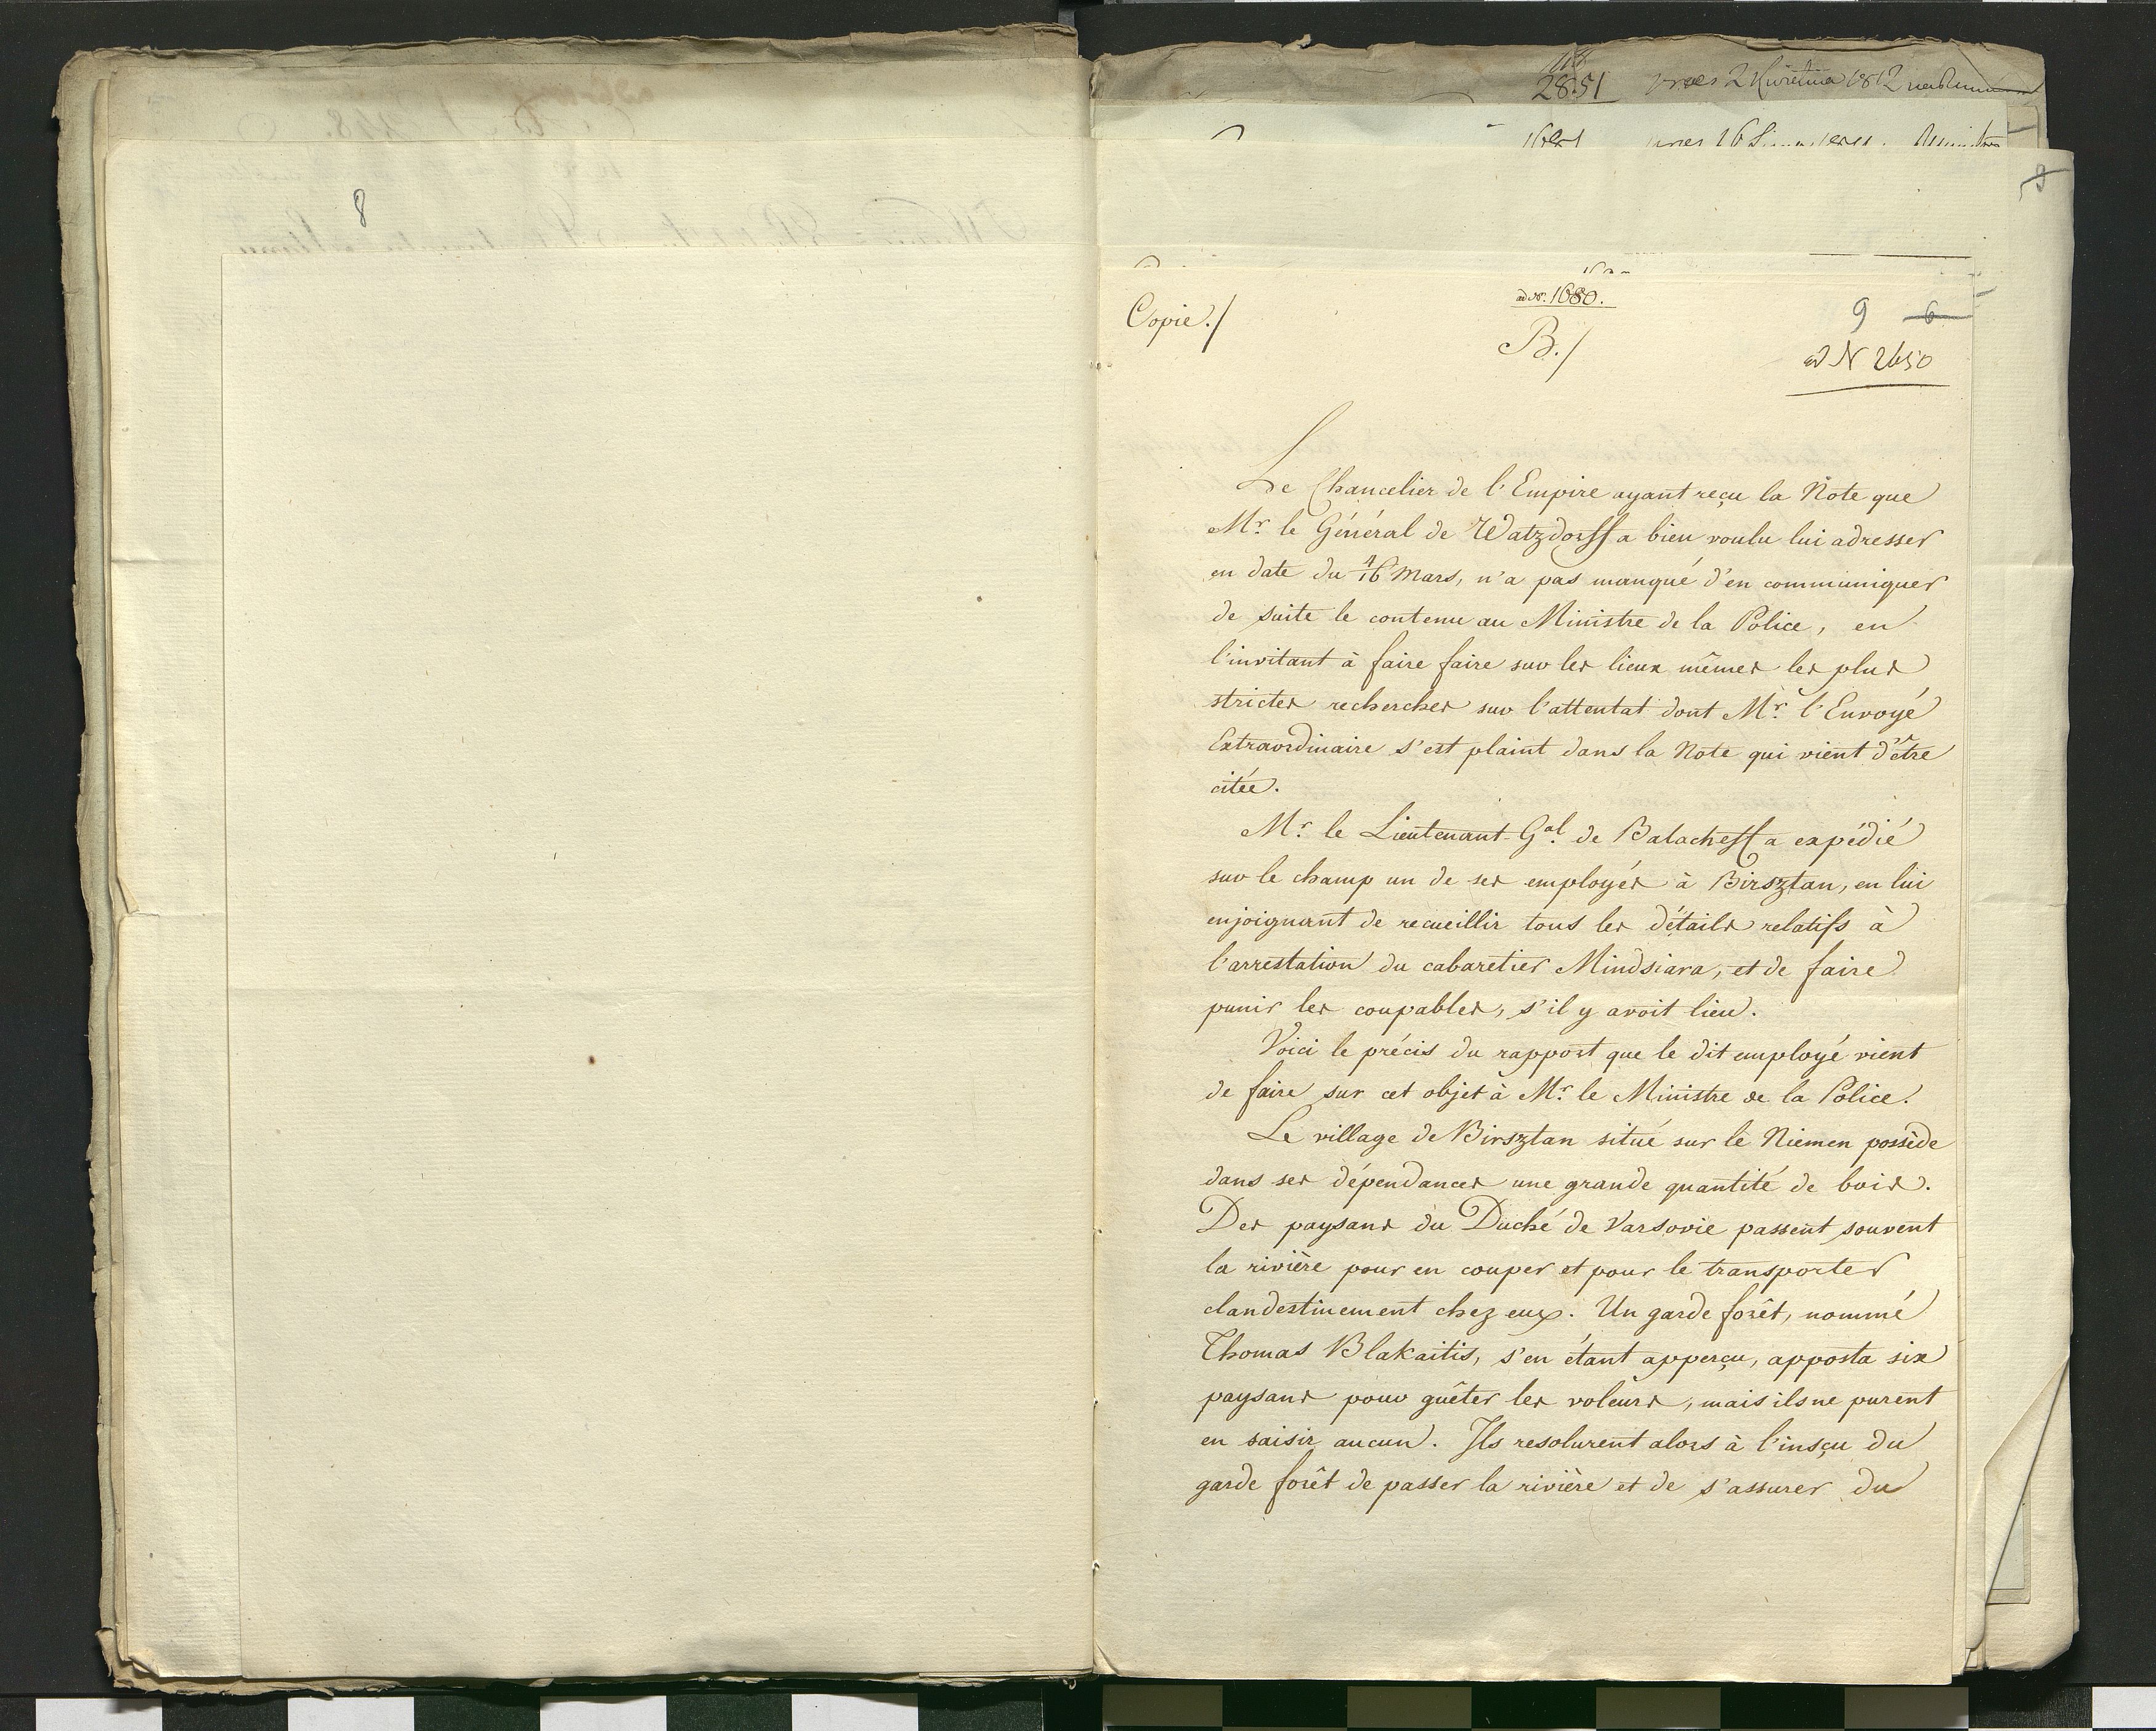 8
2851
praes 2 Kwietnia 1812
ad Nr. 1680.
Copie./
9 6
B./
ad N 2650
Le Chancelier de l'Empire ayant reçu la Note que
Mr. le Général de Watzdorff a bien voulu lui adresser
en date du 4/16 Mars, n'a pas manqué d'en communiquer
de suite le contenu au Ministre de la Police, en
l'invitant à faire faire sur les lieux mêmes les plus
strictes recherches sur l'attentat dont Mr. l'Envoyé
Extraordinaire s'est plaint dans la Note qui vient d'être
citée.
Mr. le Lieutenant-Gal. de Balacheff a expédié
sur le champ un de ses employés à Birsztan, en lui
enjoignant de recueillir tous les détails relatifs à
l'arrestation du cabaretier Mindsiara, et de faire
punir les coupables, s'il y avoit lieu.
Voici le précis du rapport que le dit employé vient
de faire sur cet objet à Mr. le Ministre de la Police.
Le village de Birsztan situé sur le Niemen possède
dans ses dépendances une grande quantité de bois.
Des paysans du Duché de Varsovie passent souvent
la rivière pour en couper et pour le transporter
clandestinement chez eux. Un garde forêt, nommé
Thomas Blakaitis, s'en étant apperçu, apposta six
paysans pour guêter les voleurs, mais ils ne purent
en saisir aucun. Ils resolurent alors à l'insçu du
garde forêt de passer la rivière et de s'assurer du